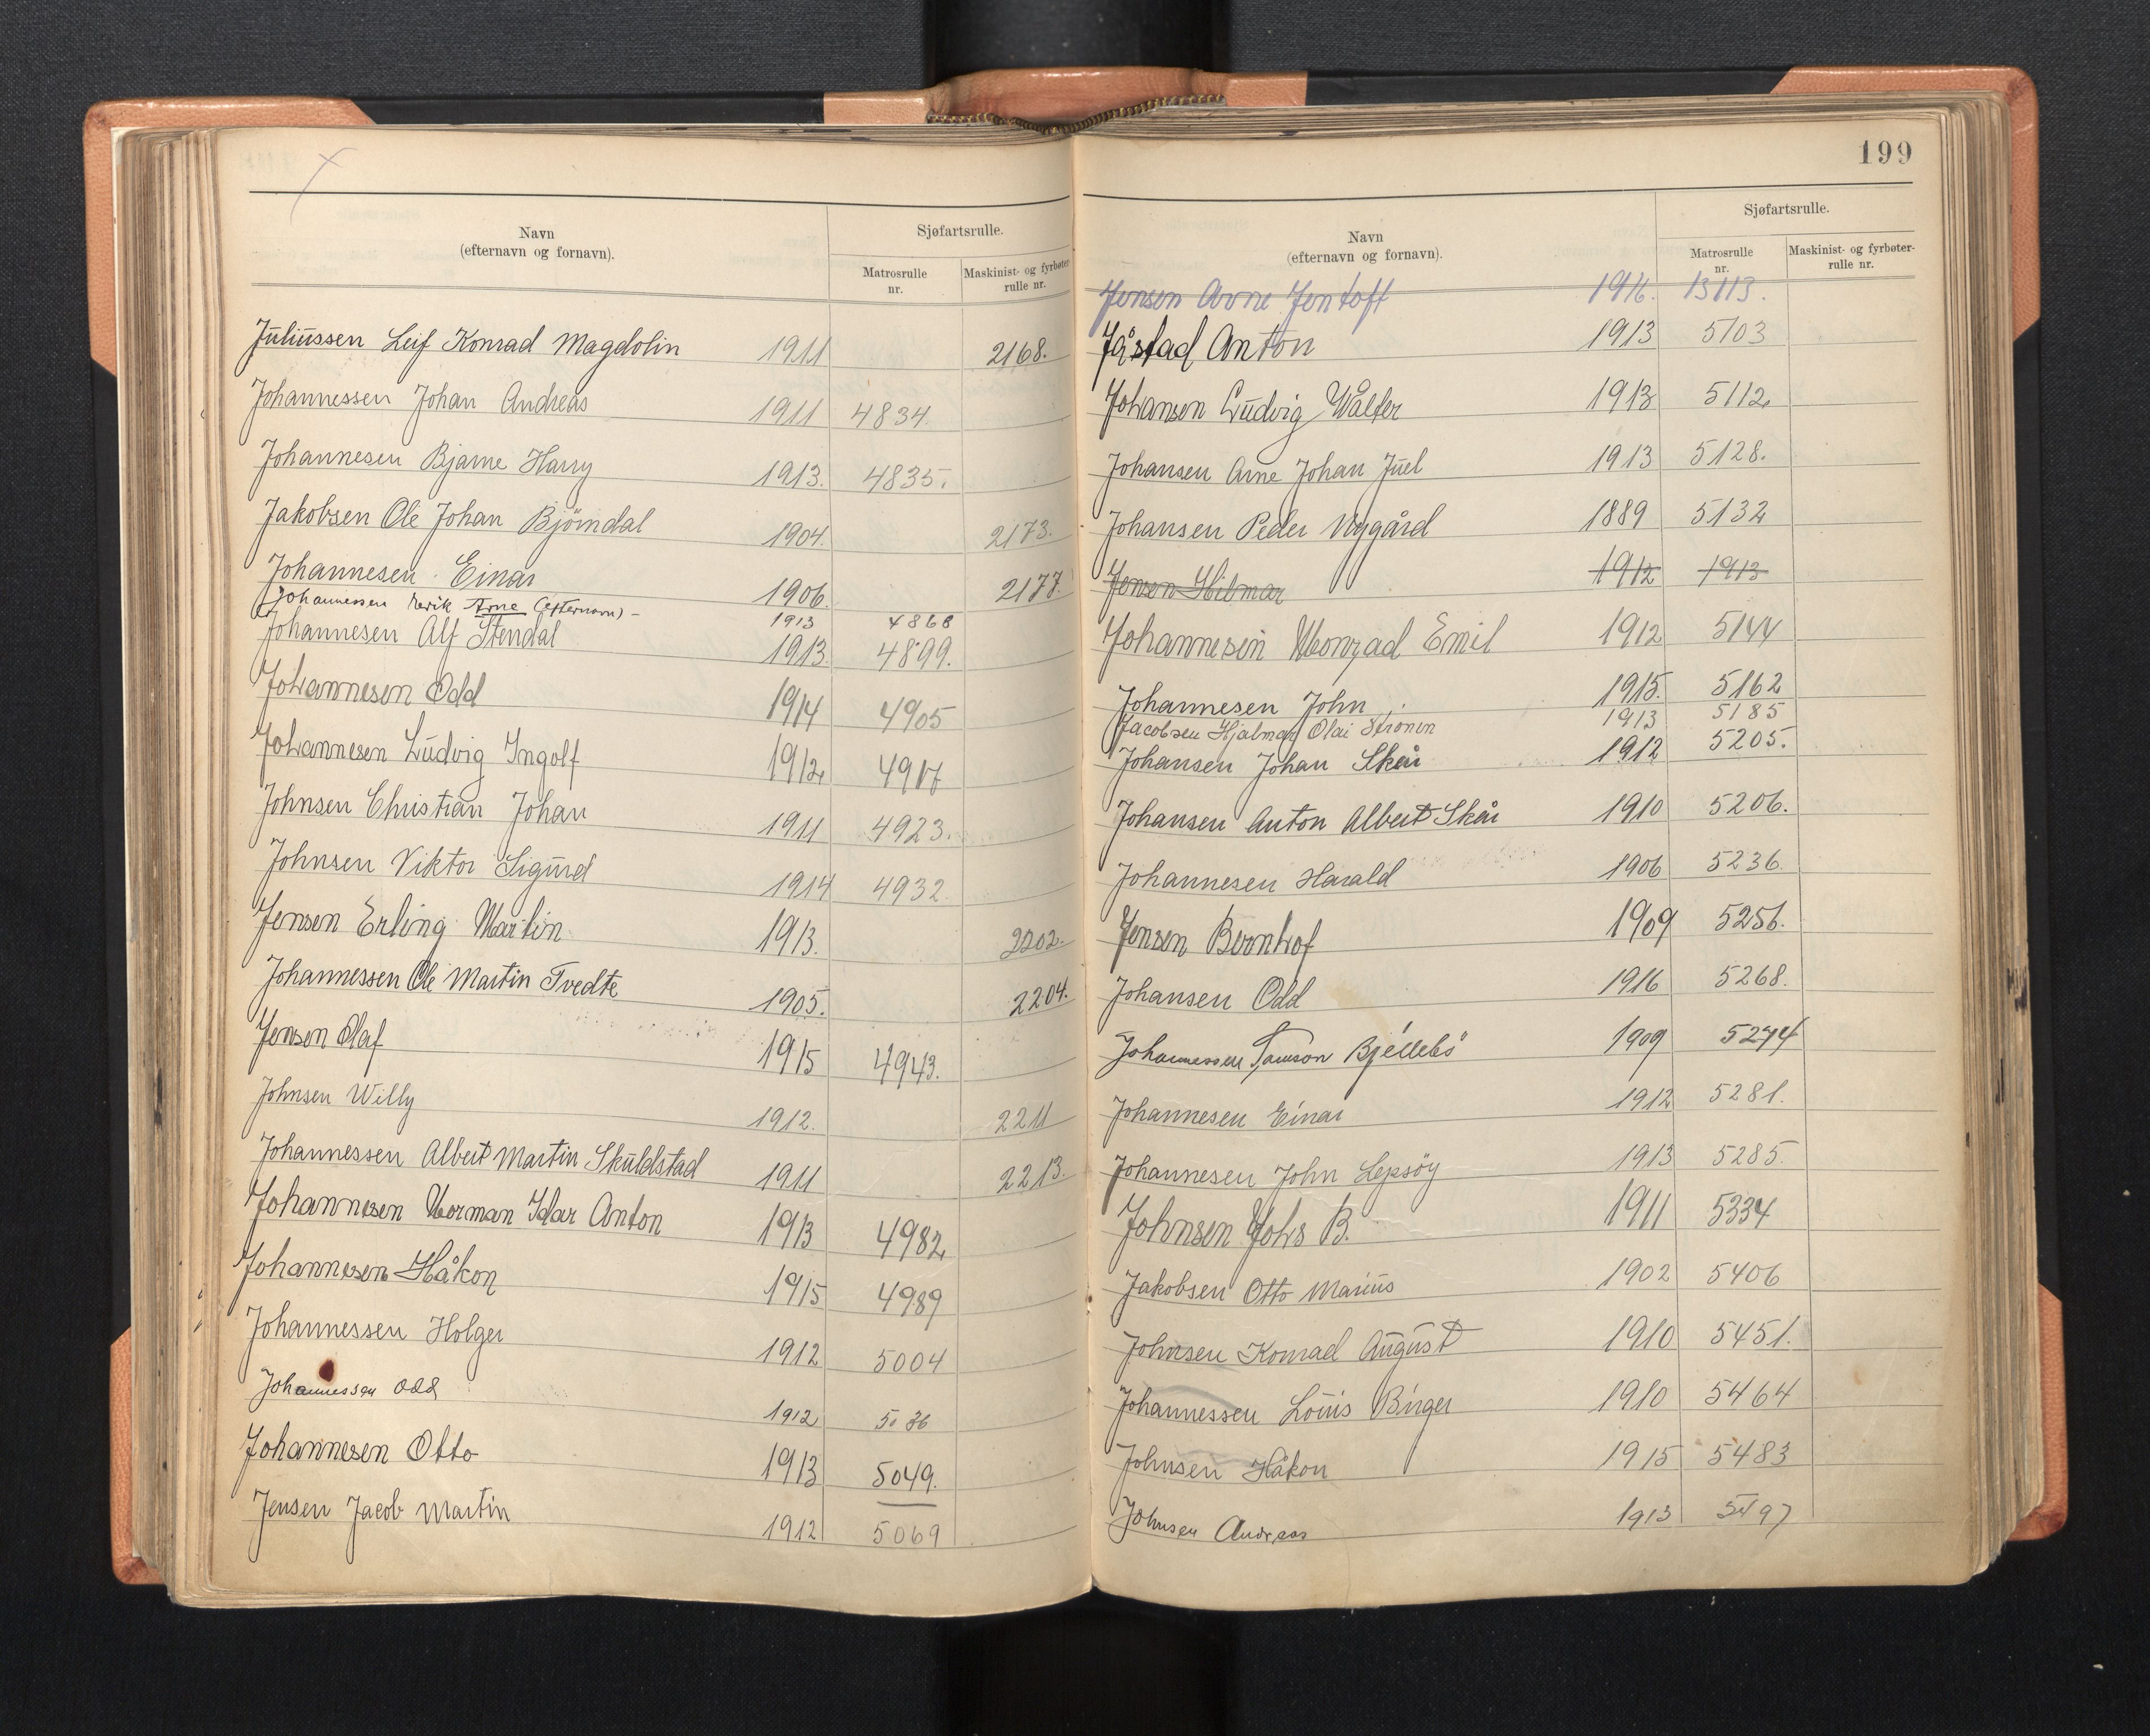 Navn
(efternavn og fornavn).
Sjøfartsrulle.
Matrosrulle
nr.
Maskinist- og fyrbøter-
rulle nr.
Juliussen Leif Konrad Magdolin 1911 2168.
Johannessen Johan Andreas 1911 4834
Johannesen Bjarne Harry 1913. 4835.
Jakobsen Ole Johan Björndal 1904. 2173.
Johannesen Einar 1906. 2177.
Johannessen Arne (efternavn) - 1913 4868
Johannesen Alf Stendal 1913. 4899.
Johannesen Odd 1914 4905
Johannesen Ludvig Ingolf 1912 4917
Johnsen Christian Johan 1911 4923.
Johnsen Viktor Sigurd 1914 4932
Jensen Erling Martin 1913. 2202.
Johannessen Ole Martin Tvedte 1905. 2204.
Jensen Olaf 1915 4943.
Johnsen Willy 1912. 2211
Johannessen Albert Martin Skuldstad 1911 2213.
Johannesen Norman Idar Anton 1913 4982
Johannesen Håkon 1915 4989
Johannessen Holger 1912 5004
Johannessen Odd 1912 5036
Johannesen Otto 1913 5049.
Jensen Jacob Martin 1912 5069
199
Navn
(efternavn og fornavn).
Sjøfartsrulle.
Matrosrulle
nr.
Maskinist- og fyrbøter-
rulle nr.
Jensen Arne Jentoft 1916. 13113.
Jåstad Anton 1913 5103
Johansen Ludvig Walter 1913 5112
Johansen Arne Johan Juel 1913 5128.
Johansen Peder Nygård 1889 5132
Jensen Hilmar 1912 1913
Johannesen Monrad Emil 1912 5144
Johannesen John 1915. 5162
Jacobsen Hjalmar Olai Strönen 1913 5185
Johansen Johan Skår 1912 5205.
Johansen Anton Albert Skår 1910 5206.
Johannesen Harald 1906 5236.
Jensen Berntof 1909 5256.
Johansen Odd 1916 5268.
Johannessen Samson 1909 5274
Johannesen Einar 1912 5281.
Johannesen John Lepsöy 1913 5285.
Johnsen Johs B. 1911 5334
Jakobsen Otto Marius 1902 5406
Johnsen Konrad August 1910 5451.
Johannessen Louis Birger 1910 5464
Johnsen Håkon 1915 5483
Johnsen Andreas 1913 5497